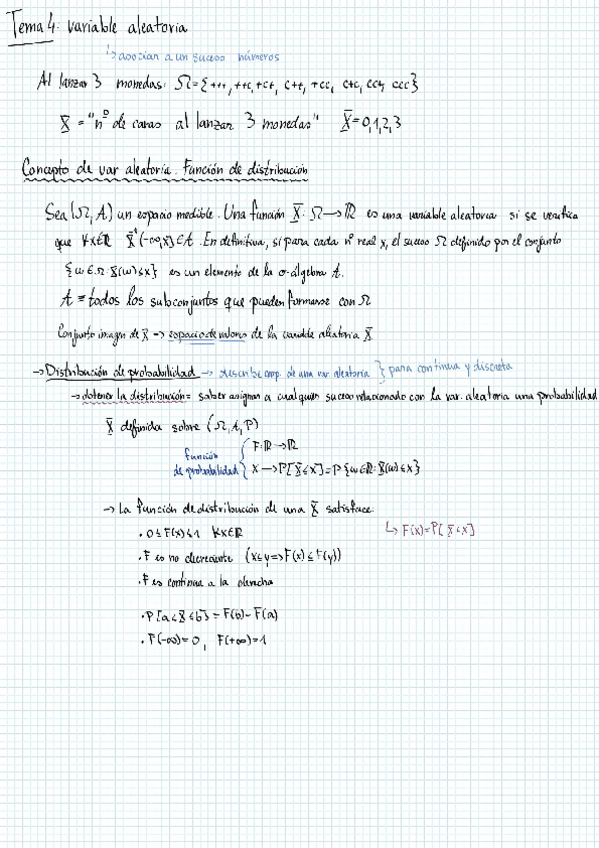 Tema 4: variable aleatoria
↳ asocian a un suceso números
Al lanzar 3 monedas: Ω={+++, ++c, +c+, c++, +cc, c+c, cc+, ccc}
X̄ = "nº de caras al lanzar 3 monedas" X̄=0,1,2,3
Concepto de var aleatoria. Función de distribución
Sea (Ω, A) un espacio medible. Una función X̄: Ω→ℝ es una variable aleatoria si se verifica
que ∀x∈ℝ X̄⁻¹(-∞,x]∈A. En definitiva, si para cada nº real x, el suceso Ω definido por el conjunto
{ω∈Ω: X̄(ω)≤x} es un elemento de la σ-álgebra A.
A = todos los subconjuntos que pueden formarse con Ω
Conjunto imagen de X̄ → espacio de valores de la variable aleatoria X̄
→ Distribución de probabilidad → describe comp. de una var. aleatoria } para continua y discreta
→ obtener la distribución = saber asignar a cualquier suceso relacionado con la var. aleatoria una probabilidad
X̄ definida sobre (Ω, A, P)
función de probabilidad { F: ℝ → ℝ
x → P[X̄≤x] = P{ω∈ℝ: X̄(ω)≤x}
→ La función de distribución de una X̄ satisface:
· 0≤F(x)≤1 ∀x∈ℝ
↳ F(x)=P[X̄≤x]
· F es no decreciente (x≤y ⇒ F(x)≤F(y))
· F es continua a la derecha
· P[a<X̄≤b] = F(b)-F(a)
· F(-∞)=0, F(+∞)=1